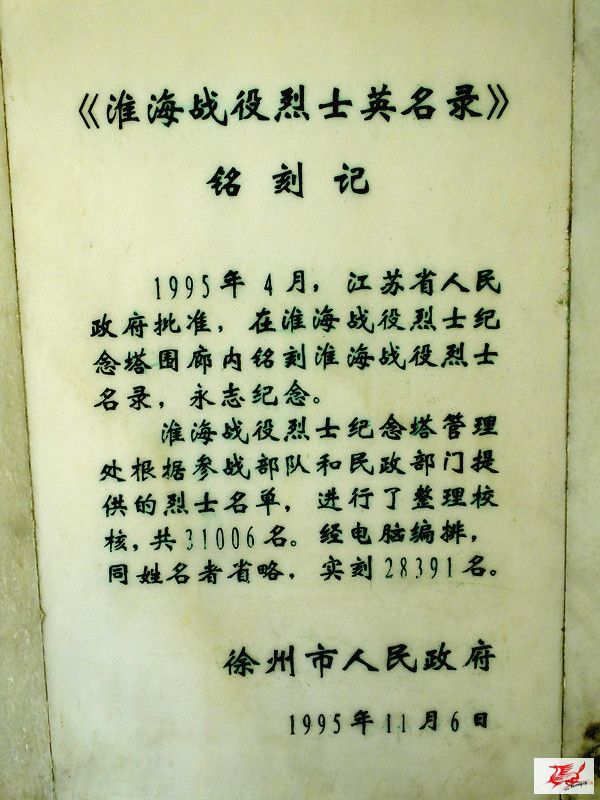 《淮海战役烈士英名录》
铭刻记
1995年4月，江苏省人民
政府批准，在淮海战役烈士纪
念塔围廊内铭刻淮海战役烈士
名录，永志纪念。
淮海战役烈士纪念塔管理
处根据参战部队和民政部门提
供的烈士名单，进行了整理校
核，共31006名。经电脑编排，
同姓名者省略，实刻28391名。
徐州市人民政府
1995年11月6日